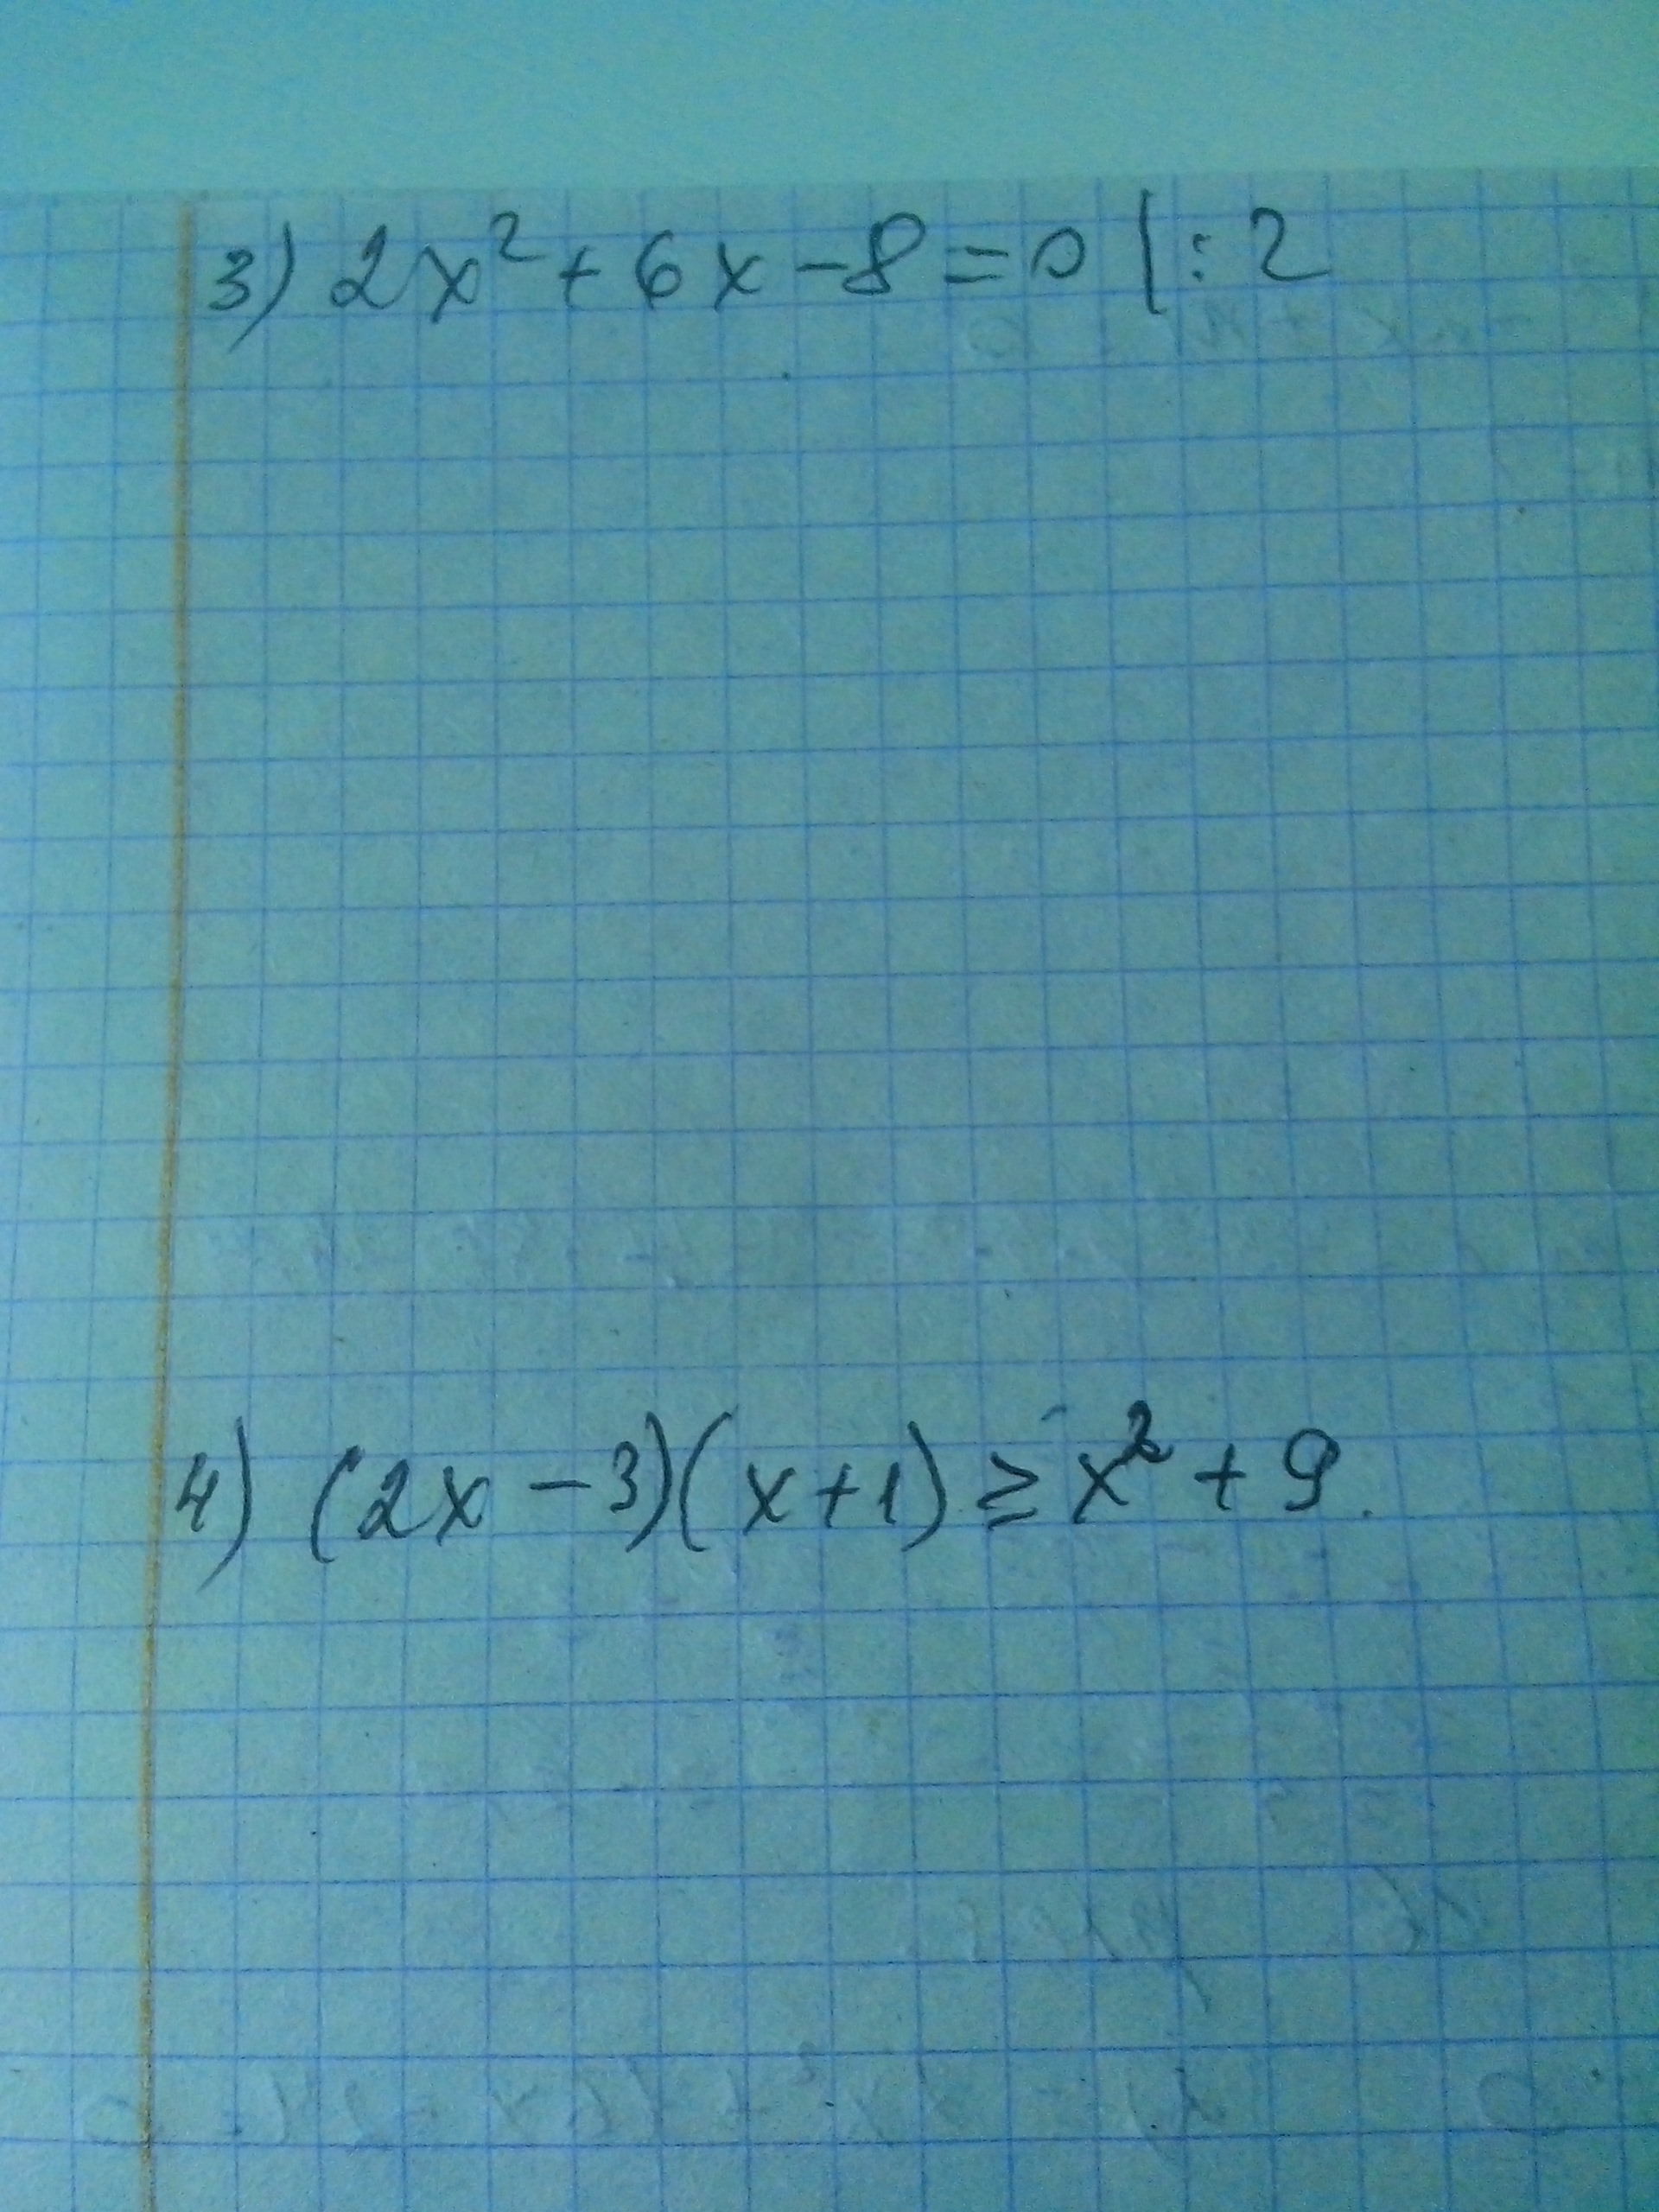 3) 2x² + 6x - 8 = 0 |: 2
4) (2x - 3)(x + 1) ≥ x² + 9.